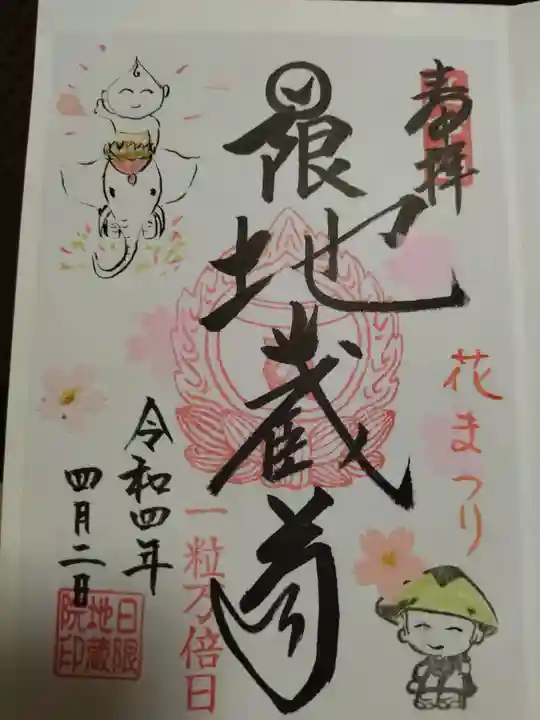 奉拝
花まつり
日限地蔵尊
一粒万倍日
令和四年
四月二日
日限
地蔵
院印